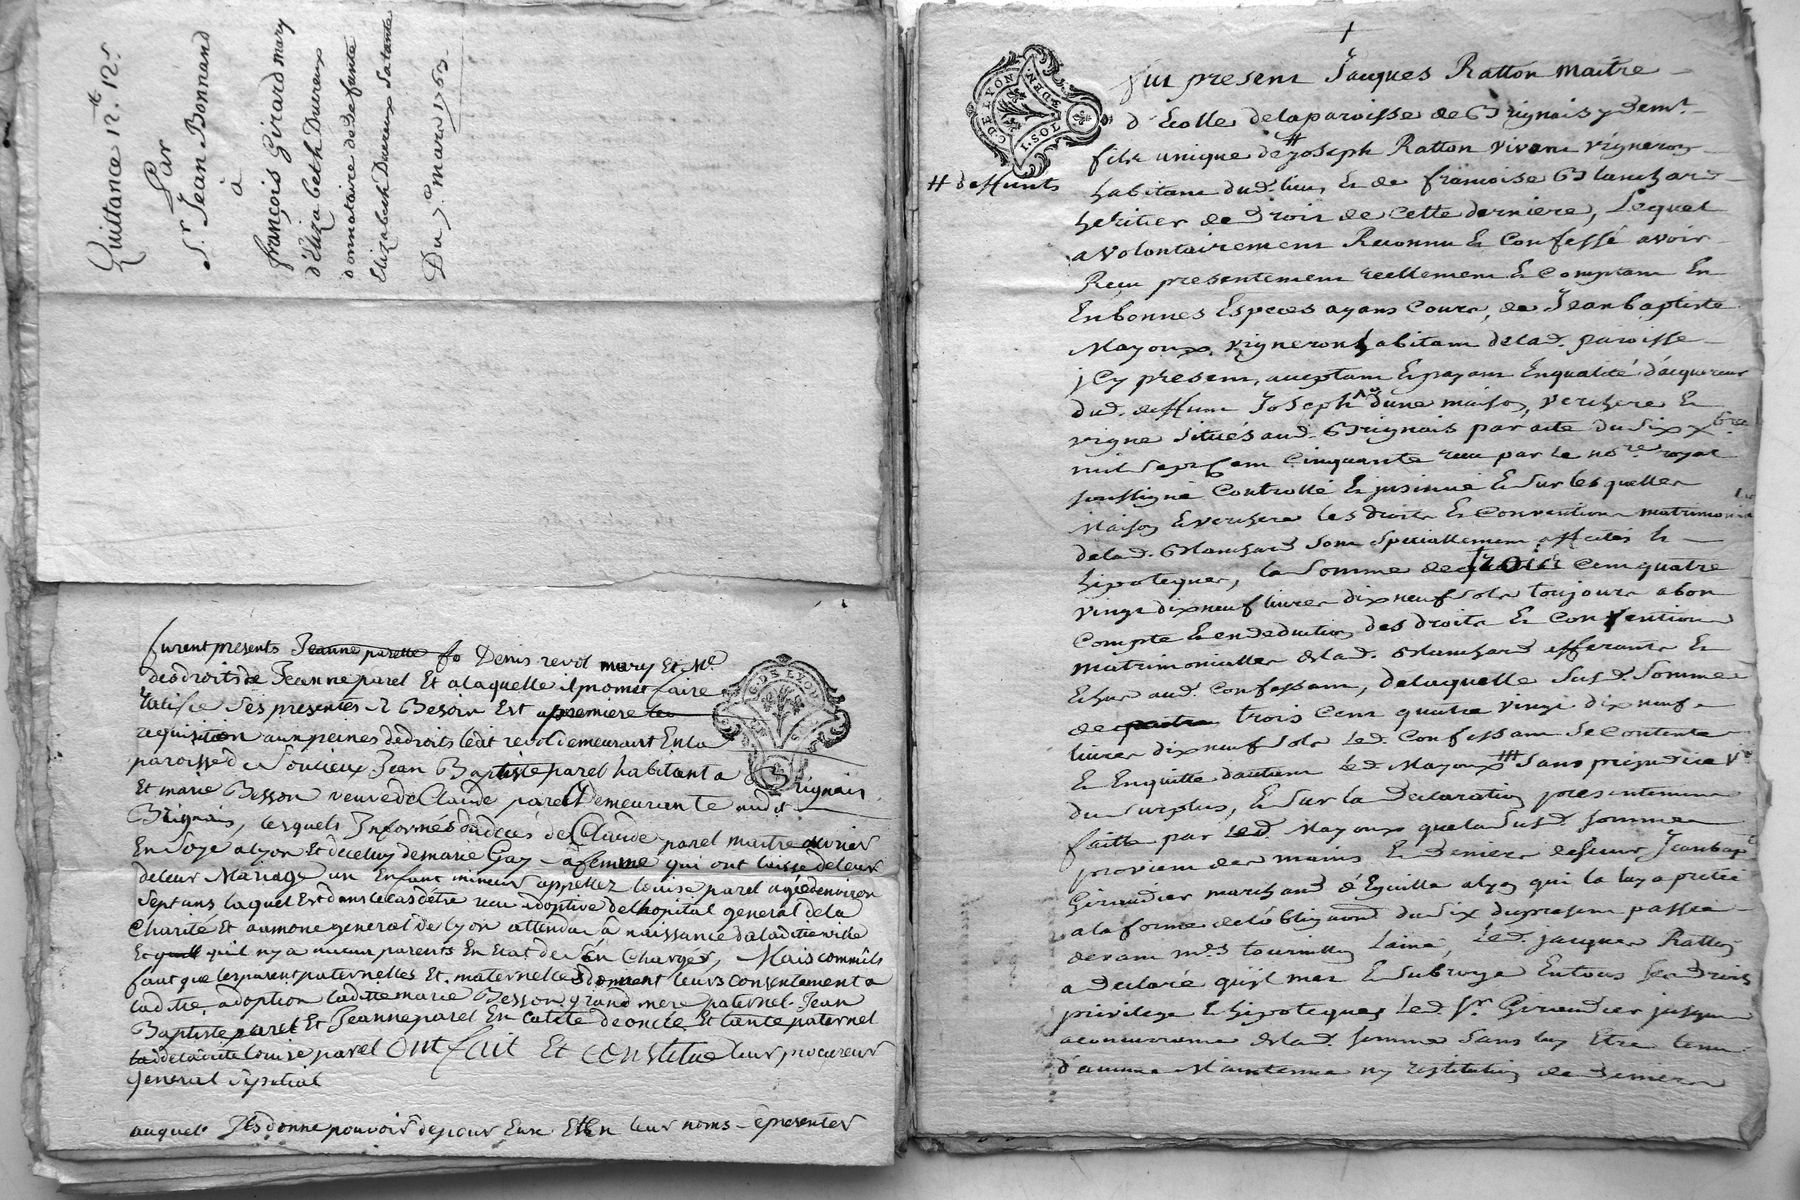 Quittance 12.tt 12.s
Par
S.r Jean Bonnand
à
françois Girard mary
d'Elizabeth Duvreux
donnataire de defunte
Elizabeth Duvreux sa tante
Du 7.e mars 1763.
furent presents Jeanne parelle fo Denis revol mary Et Me
des droits de Jeanne parel Et a laquelle il promet faire
ratifie ses presentes S Besoin Est a premiere
requisition aux peines de droits ledt revol demeurant En la
paroisse de Soucieux Jean Baptiste parel habitant a Brignais
Et marie Besson veuve de Claude parel Demeurante audit
Brignais, lesquels Informés du decès de Claude parel maitre ouvrier
En Soye a lyon Et de celuy de marie Gay sa femme qui ont laissé de leur
de leur Mariage un Enfant mineur appellez louise parel agée d'environ
sept ans laquel Est dans le cas d'être reçu adoptive de l'hopital general de la
Charité Et aumone general de lyon attendu sa naissance de la ditte ville
Et quil ny a aucun parents En Etat de s'en Charger, Mais comme il
faut que les parent paternelles Et maternelles donnent leurs consentement a
laditte adoption laditte marie Besson grand mere paternel Jean
Baptiste parel Et Jeanne parel En calité de oncle Et tante paternel
de la ditte louise parel Ont fait Et constitué leur procureur
general Spécial
auquel Ils donne pouvoir de pour Eux Et En leur noms representer
C. DE LYON
+
fut present Jacques Ratton maitre
d'Ecolle de la paroisse de Brignais y demt.
fils unique de # Joseph Ratton vivant vigneron
# deffunts
habitant dud. lieu, & de francoise Blanchard
heritier de droit de Cette derniere, Lequel
a volontairement Reconnu & Confessé avoir
Reçu presentement reellement & Comptant En
En bonnes Especes ayans Cours, de Jean baptiste
Mayoux, vigneron habitant de lad. paroisse
jcy present, acceptant & payant En qualité d'acquereur
dud. deffunt Joseph d'une maison, verchere &
vigne situés aud. Brignais par acte du six xbre
mil sept cent Cinquante reçu par le nore. royal
soussigné Controllé & jnsinué & sur lesquelles
Maison & verchere les droits & Convention matrimoniale
de lad. Blanchard sont specialement affectés &
hipotequés, la somme de trois Cent quatre
vingt dix neuf livres dix neuf sols toujours a bon
Compte & en deduction des droits & Convention
matrimonialles de lad. Blanchard afferants &
Echus aud. Confessant, de laquelle susd. somme
de trois cent quatre vingt dix neuf
livres dix neuf sols led. Confessant se Contente
& En quitte d'autant led. Mayoux # sans prejudice
du surplus, & sur la Declaration presentement
faitte par led. Mayoux que la susd. somme
provient des mains & deniers de sieur Jean bapte.
Giraudier marchand d'Eguille a lyon qui la luy a pretée
a la forme de l'obligaon. du six du present passée
devant me. tournilly l'ainé. led. jacques Ratton
a declaré qu'il met & subroge En tous ses droits
privilege & hipoteques led. Sr. Giraudier jusqu'a
a concurrance de lad. somme sans luy Etre tenu
d'aucune Maintenue ny restitution de deniers
C. DE LYON
I. SOL 8. DEN.